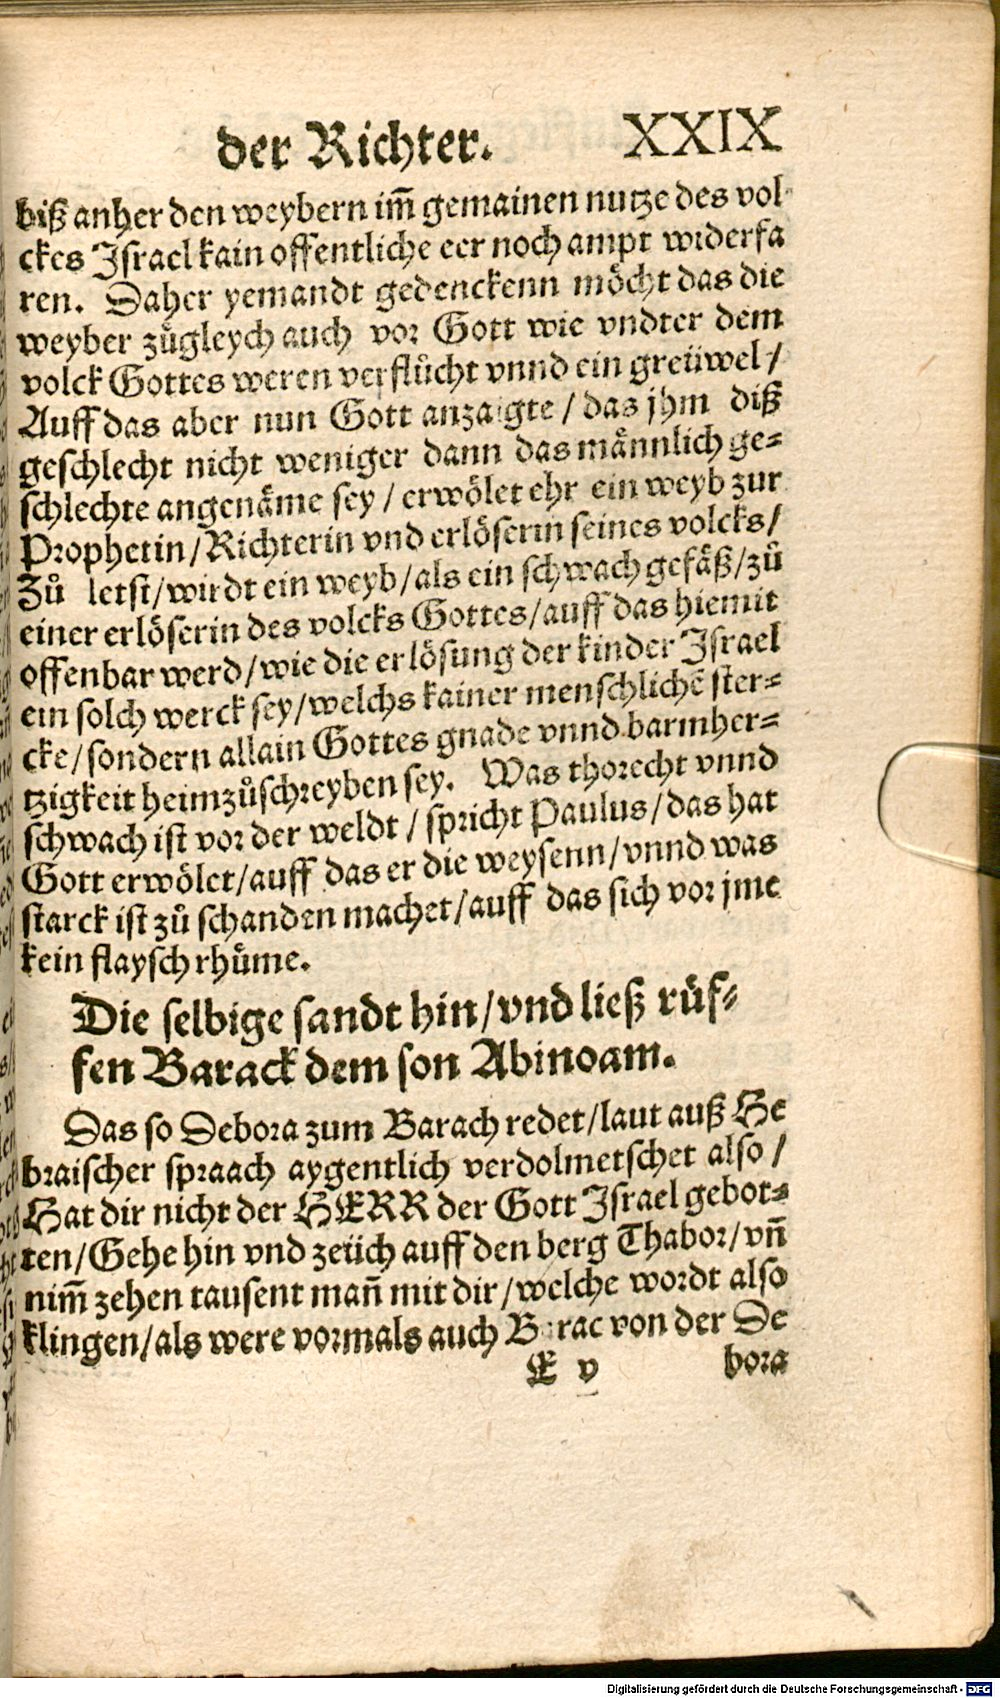 der Richter. XXIX
biß anher den weybern im̃ gemainen nutze des vol
ckes Jsrael kain offentliche eer noch ampt widerfa
ren. Daher yemandt gedenckenn möcht das die
weyber zůgleych auch vor Gott wie vndter dem
volck Gottes weren verflůcht vnnd ein greüwel /
Auff das aber nun Gott anzaigte / das jhm diß
geschlecht nicht weniger dann das männlich ge-
schlechte angenäme sey / erwölet ehr ein weyb zur
Prophetin / Richterin vnd erlöserin seines volcks /
Zů letst / wirdt ein weyb / als ein schwach gefäß / zů
einer erlöserin des volcks Gottes / auff das hiemit
offenbar werd / wie die erlösung der kinder Jsrael
ein solch werck sey / welchs kainer menschlichẽ ster-
cke / sondern allain Gottes gnade vnnd barmher-
tzigkeit heimzůschreyben sey. Was thorecht vnnd
schwach ist vor der weldt / spricht Paulus / das hat
Gott erwölet / auff das er die weysenn / vnnd was
starck ist zů schanden machet / auff das sich vor jme
kein flaysch rhůme.
Die selbige sandt hin / vnd ließ růf-
fen Barack dem son Abinoam.
Das so Debora zum Barach redet / laut auß He
braischer spraach aygentlich verdolmetschet also /
Hat dir nicht der HERR der Gott Jsrael gebot-
ten / Gehe hin vnd zeüch auff den berg Thabor / vñ
nim̃ zehen tausent mañ mit dir / welche wordt also
klingen / als were vormals auch Barac von der De
E v bora
Digitalisierung gefördert durch die Deutsche Forschungsgemeinschaft - DFG